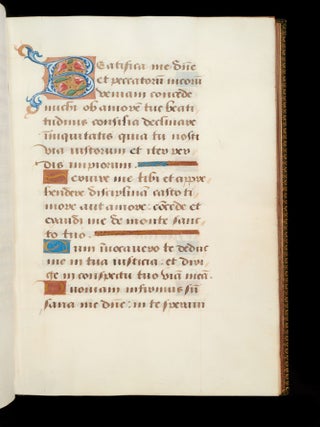 Beatifica me dñe
et peccatorũ meorũ
veniam concede
michi ob amorem tue beati
tudinis consilia declinare
iniquitatis quia tu nosti
via iustorum et iter per
dis impiorum
overe me tibi et appre
hendere disciplinã casto ti
more aut amore: cõcede et
exaudi me de monte sanc
to tuo
Cum invocavero te deduc
me in tua iusticia: et diri
ge in conspectu tuo viã meã
Quoniam infirmus sũ
sana me dñe: in te speram